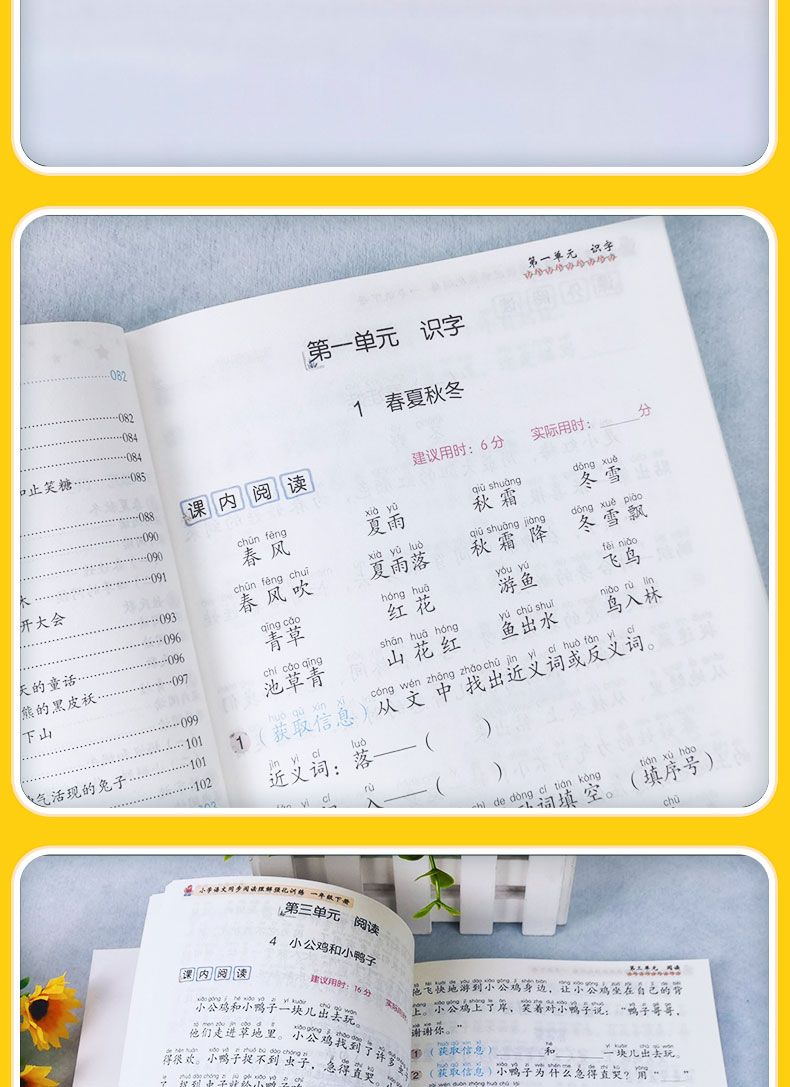 082
082
084
084
和止笑糖 085
088
090
090
091
开大会 093
096
天的童话 096
熊的黑皮袄 097
下山
099
101
气活现的兔子 101
102
第一单元 识字
第一单元 识字
1 春夏秋冬
建议用时：6分 实际用时： 分
课内阅读
chūn fēng xià yǔ qiū shuāng dōng xuě
春风 夏雨 秋霜 冬雪
chūn fēng chuī xià yǔ luò qiū shuāng jiàng dōng xuě piāo
春风吹 夏雨落 秋霜降 冬雪飘
qīng cǎo hóng huā yóu yú fēi niǎo
青草 红花 游鱼 飞鸟
chí cǎo qīng shān huā hóng yú chū shuǐ niǎo rù lín
池草青 山花红 鱼出水 鸟入林
huò qǔ xìn xī cóng wén zhōng zhǎo chū jìn yì cí huò fǎn yì cí
1 （获取信息）从文中找出近义词或反义词。
jìn yì cí luò
近义词：落——（ ）
rù
入——（ ）
cí tián kòng tián xù hào
动词填空。（填序号）
小学语文同步阅读理解强化训练 一年级下册
第三单元 阅读
4 小公鸡和小鸭子
课内阅读
建议用时：16分
小公鸡和小鸭子一块儿出去玩。
他们走进草地里。小公鸡找到了许多
得很欢。小鸭子捉不到虫子，急得直哭。小
捉到虫子就给小鸭子
第三单元 阅读
他飞快地游到小公鸡身边，让小公鸡坐在自己的背
上。小公鸡上了岸，笑着对小鸭子说：“鸭子哥哥，
谢谢你。”
1 （获取信息） 和 一块儿出去玩。
2 （获取信息）小鸭子为什么急得直哭？用“ ”